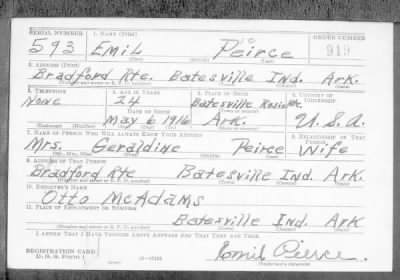 SERIAL NUMBER 1. NAME (Print) ORDER NUMBER
593 Emil Peirce 919
(First) (Middle) (Last)
2. ADDRESS (Print)
Bradford Rte. Batesville Ind. Ark.
(Number and street or R. F. D. number) (Town) (County) (State)
3. TELEPHONE 4. AGE IN YEARS 5. PLACE OF BIRTH 6. COUNTRY OF CITIZENSHIP
None 24 Batesville Rosie Rte
DATE OF BIRTH (Town or county)
May 6 1916 Ark. U.S.A.
(Exchange) (Number) (Mo.) (Day) (Yr.) (State or country)
7. NAME OF PERSON WHO WILL ALWAYS KNOW YOUR ADDRESS 8. RELATIONSHIP OF THAT PERSON
Mrs. Geraldine Peirce Wife
(Mr., Mrs., Miss) (First) (Middle) (Last)
9. ADDRESS OF THAT PERSON
Bradford Rte Batesville Ind. Ark.
(Number and street or R. F. D. number) (Town) (County) (State)
10. EMPLOYER'S NAME
Otto McAdams
11. PLACE OF EMPLOYMENT OR BUSINESS
Batesville Ind. Ark
(Number and street or R. F. D. number) (Town) (County) (State)
I AFFIRM THAT I HAVE VERIFIED ABOVE ANSWERS AND THAT THEY ARE TRUE.
REGISTRATION CARD
D. S. S. Form 1 16-17105 Emil Peirce
(Registrant's signature)